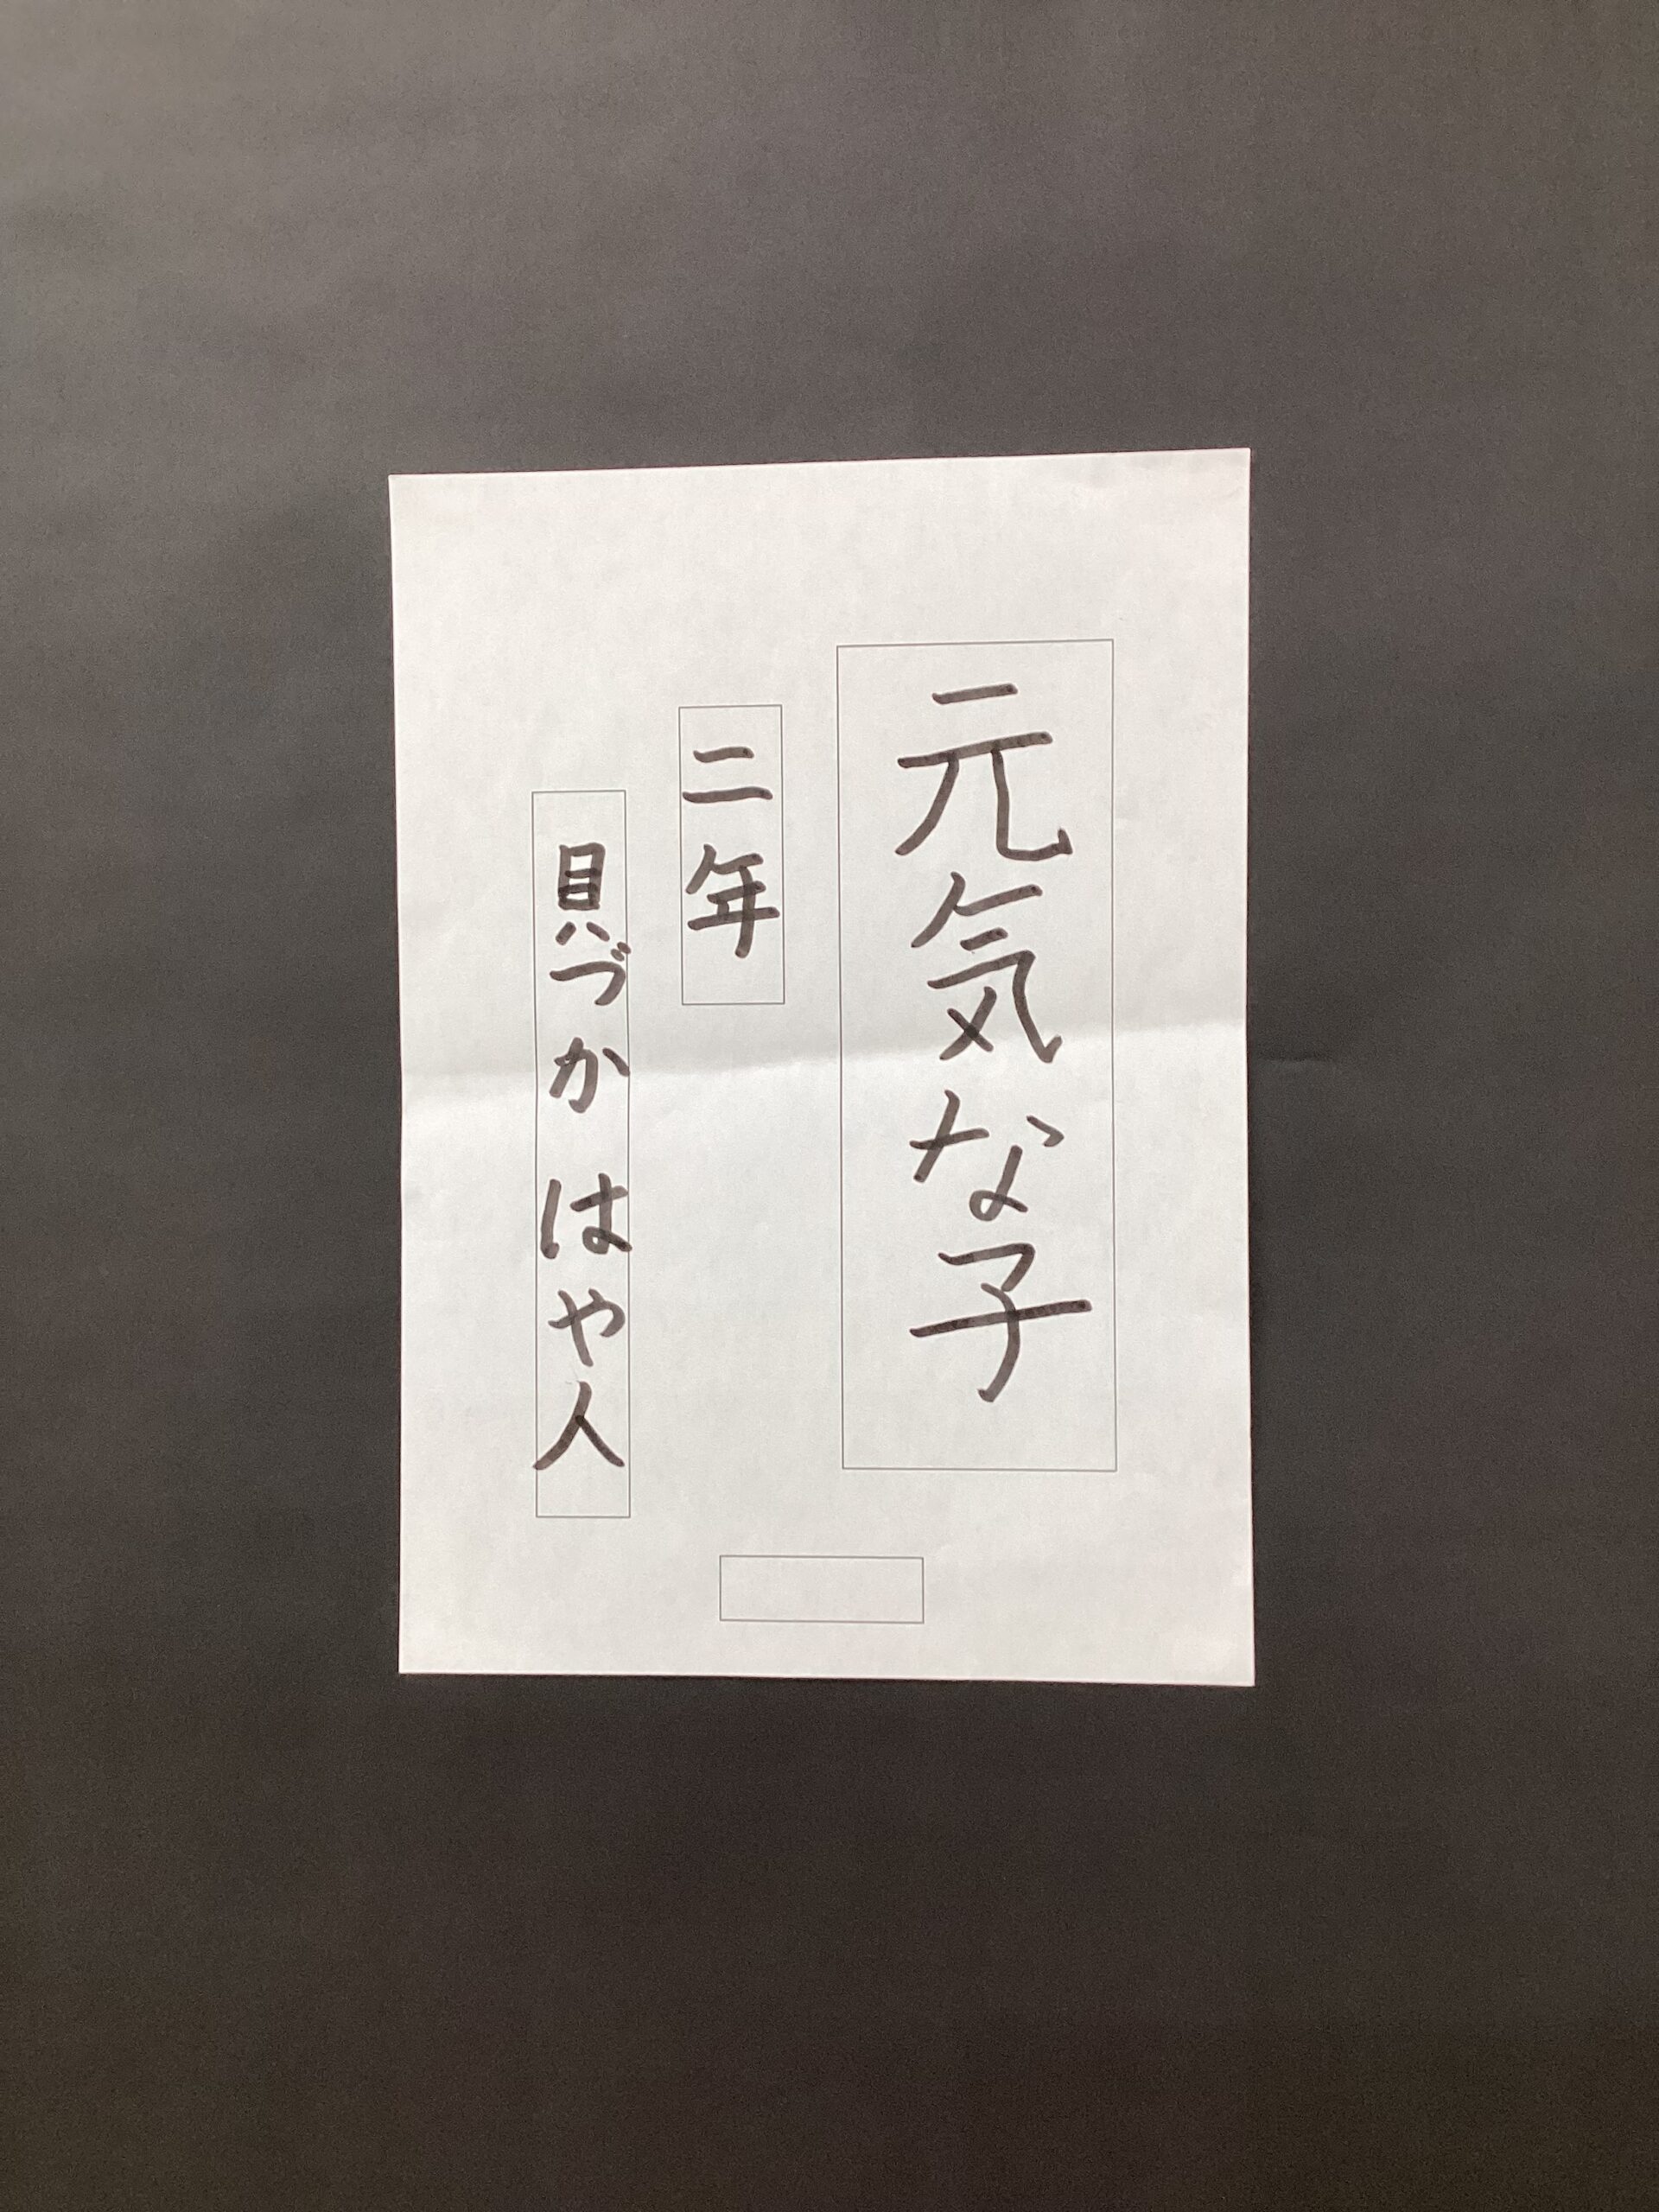 元気な子
二年
貝づか はや人